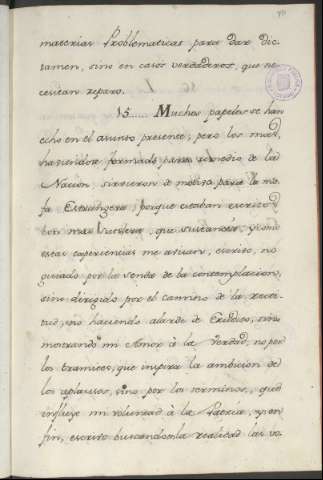 materias Problematicas para dar dic-
tamen, sino en casos verdaderos, que ne-
cesitan reparo.
15...... Muchos papeles se han
echo en el asunto presente; pero los mas,
haviendose formado para remedio de la
Nacion, sirvieron de motivo para la mo-
fa Estrangera, porque estaban escritos
con mas que
estas experiencias me avisan, escrito, no
guiado por la senda de la contemplacion,
sino dirigido por el camino de la recti-
tud, no haciendo alarde de Erudito, sino
mostrando mi Amor à la Verdad, no por
los tramites, que inspira la ambicion de
los aplausos, sino por los terminos, que
influye mi voluntad à la Patria, y por
fin, escrito buscando la realidad las vo-